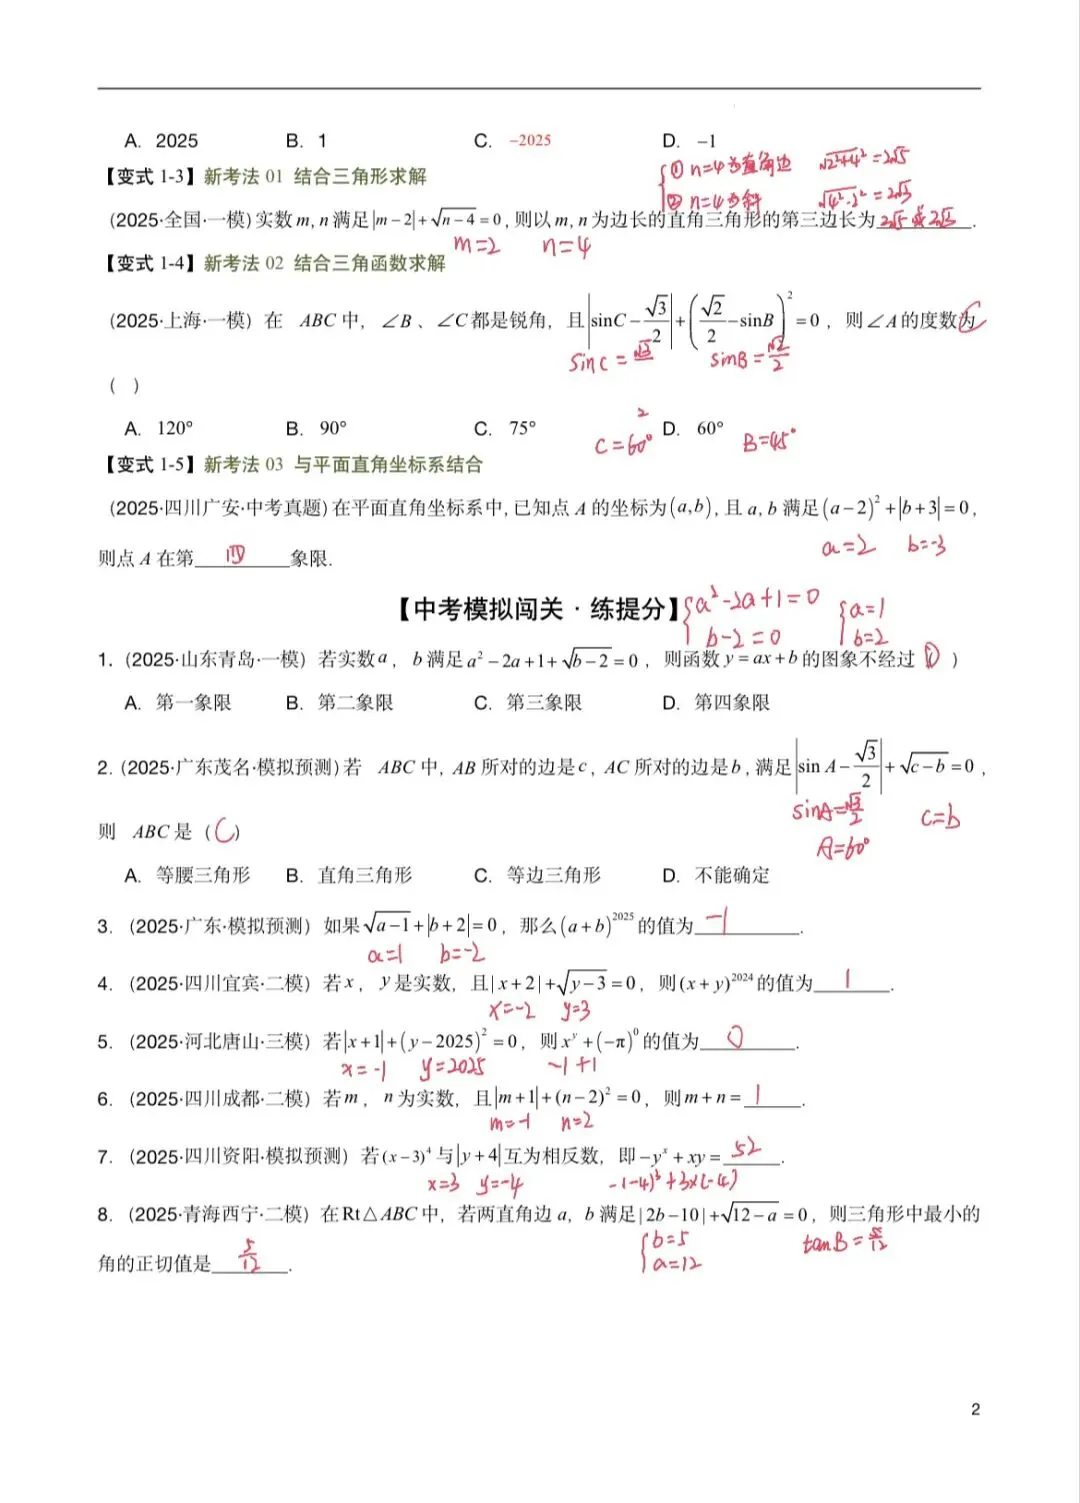 A. 2025 B. 1 C. −2025 D. −1
【变式 1-3】新考法 01 结合三角形求解
① n=4为直角边 √2²+4² =2√5
② n=4为斜 √4²-2² =2√3
(2025·全国·一模)实数 m, n 满足 |m−2|+√n−4=0, 则以 m, n 为边长的直角三角形的第三边长为 2√5 或 2√3 .
m=2 n=4
【变式 1-4】新考法 02 结合三角函数求解
(2025·上海·一模) 在 ABC 中, ∠B 、∠C 都是锐角, 且 |sinC−√3/2|+(√2/2−sinB)²=0 , 则 ∠A 的度数为 C
sinC = √3/2 sinB = √2/2
( )
A. 120° B. 90° C. 75° D. 60°
C=60° B=45°
【变式 1-5】新考法 03 与平面直角坐标系结合
(2025·四川广安·中考真题) 在平面直角坐标系中, 已知点 A 的坐标为 (a,b), 且 a, b 满足 (a−2)²+|b+3|=0,
a=2 b=-3
则点 A 在第 四 象限.
【中考模拟闯关 · 练提分】
a²-2a+1=0 a=1
b-2=0 b=2
1. (2025·山东青岛·一模) 若实数 a , b 满足 a²−2a+1+√b−2=0 , 则函数 y=ax+b 的图象不经过 ( D )
A. 第一象限 B. 第二象限 C. 第三象限 D. 第四象限
2. (2025·广东茂名·模拟预测) 若 ABC 中, AB 所对的边是 c, AC 所对的边是 b, 满足 |sin A−√3/2|+√c−b=0 ,
sinA=√3/2 c=b
则 ABC 是 ( C )
A=60°
A. 等腰三角形 B. 直角三角形 C. 等边三角形 D. 不能确定
3. (2025·广东·模拟预测) 如果 √a−1+|b+2|=0 , 那么 (a+b)²⁰²⁵ 的值为 -1 .
a=1 b=-2
4. (2025·四川宜宾·二模) 若 x , y 是实数, 且 |x+2|+√y−3=0 , 则 (x+y)²⁰²⁴ 的值为 1 .
x=-2 y=3
5. (2025·河北唐山·三模) 若 |x+1|+(y−2025)²=0 , 则 xʸ+(−π)⁰ 的值为 0 .
x=-1 y=2025 -1+1
6. (2025·四川成都·二模) 若 m , n 为实数, 且 |m+1|+(n−2)²=0 , 则 m+n= 1 .
m=-1 n=2
7. (2025·四川资阳·模拟预测) 若 (x−3)⁴ 与 |y+4| 互为相反数, 即 −yˣ+xy= 52 .
x=3 y=-4 -(-4)³+3×(-4)
8. (2025·青海西宁·二模) 在 Rt△ABC 中, 若两直角边 a, b 满足 |2b−10|+√12−a=0 , 则三角形中最小的
b=5 tanB=5/12
角的正切值是 5/12 .
a=12
2